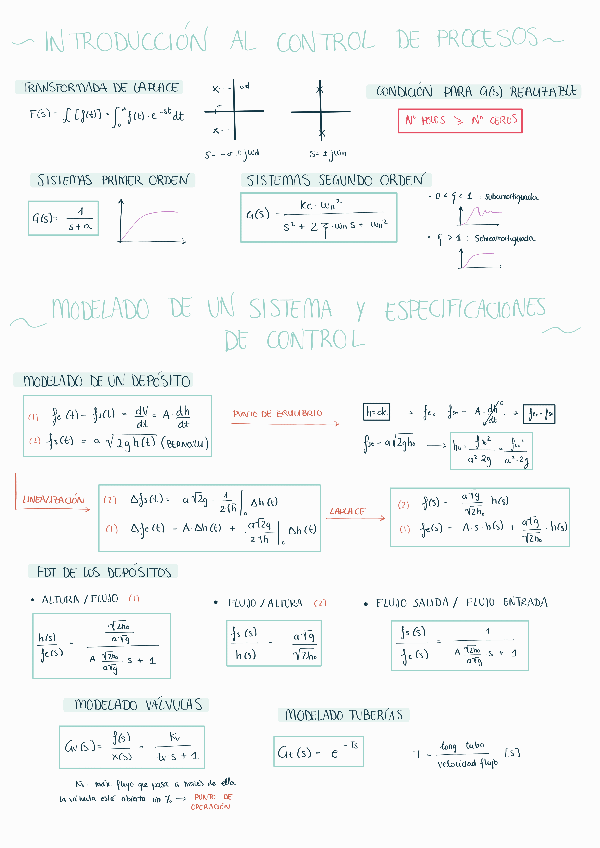 ~ INTRODUCCIÓN AL CONTROL DE PROCESOS ~
TRANSFORMADA DE LAPLACE
F(s) = ∫ [f(t)] = ∫₀^∞ f(t) · e^-st dt
s = -σ ± jωd
s = ± jωn
CONDICIÓN PARA G(s) REALIZABLE
Nº POLOS ≥ Nº CEROS
SISTEMAS PRIMER ORDEN
G(s) = 1 / (s + a)
SISTEMAS SEGUNDO ORDEN
G(s) = (Ke · ωn²) / (s² + 2 ζ · ωn s + ωn²)
• 0 < ζ < 1 : Subamortiguada
• ζ > 1 : Sobreamortiguada
~ MODELADO DE UN SISTEMA Y ESPECIFICACIONES
DE CONTROL ~
MODELADO DE UN DEPÓSITO
(1) fe(t) - fs(t) = dV/dt = A · dh/dt
(2) fs(t) = a √2gh(t) (BERNOULLI)
PUNTO DE EQUILIBRIO
h = ctte
feo - fso = A · dh/dt
feo = fso
fso = a√2gho
ho = fso² / (a² · 2g) = feo² / (a² · 2g)
LINEALIZACIÓN
(2) Δfs(t) = a√2g 1/(2√h) |o Δh(t)
(1) Δfe(t) = A · Δh(t) + a√2g/(2√h) |o Δh(t)
LAPLACE
(2) fs(s) = a√g/√2ho h(s)
(1) fe(s) = A · s · h(s) + a√g/√2ho · h(s)
FDT DE LOS DEPÓSITOS
• ALTURA / FLUJO (1)
h(s)/fe(s) = (√2ho/a√g) / (A √2ho/a√g · s + 1)
• FLUJO / ALTURA (2)
fs(s)/h(s) = a√g/√2ho
• FLUJO SALIDA / FLUJO ENTRADA
fs(s)/fe(s) = 1 / (A √2ho/a√g s + 1)
MODELADO VÁLVULAS
Gv(s) = f(s)/x(s) = Kv / (τv s + 1)
Kv máx flujo que pasa a través de ella
la válvula está abierta un % → PUNTO DE
OPERACIÓN
MODELADO TUBERÍAS
Gt(s) = e^-Ts
T = long tubo / velocidad flujo [s]